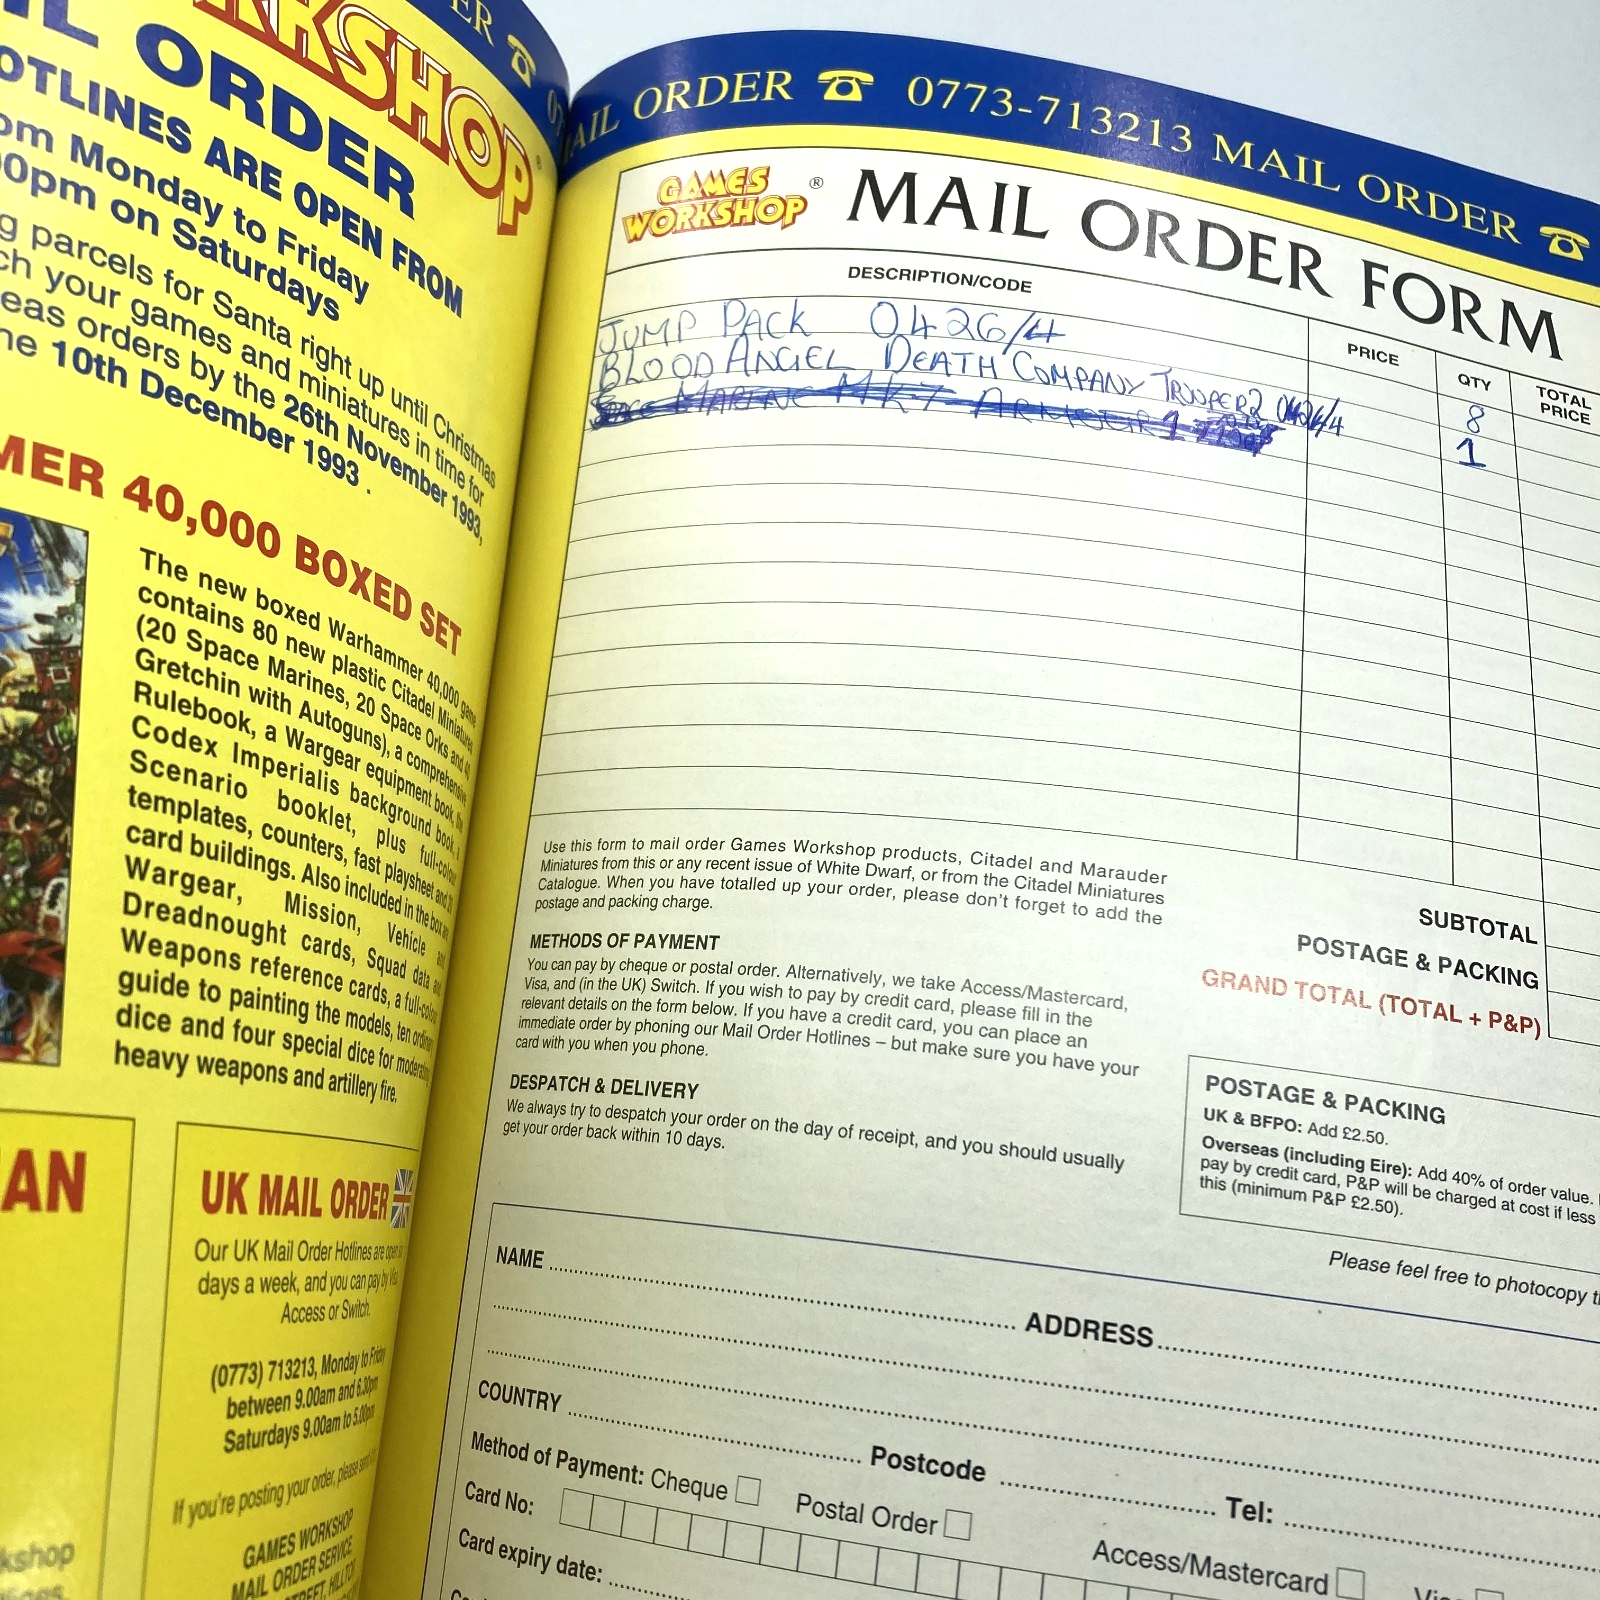 ORKSHOP
IL ORDER
OTLINES ARE OPEN FROM
om Monday to Friday
00pm on Saturdays
g parcels for Santa right up until Christmas
ch your games and miniatures in time for
eas orders by the 26th November 1993,
he 10th December 1993 .
MER 40,000 BOXED SET
The new boxed Warhammer 40,000 game
contains 80 new plastic Citadel Miniatures
(20 Space Marines, 20 Space Orks and 40
Gretchin with Autoguns), a comprehensive
Rulebook, a Wargear equipment book, the
Codex Imperialis background book, a
Scenario booklet, plus full-colour
templates, counters, fast playsheet and
card buildings. Also included in the box are
Wargear, Mission, Vehicle and
Dreadnought cards, Squad data and
Weapons reference cards, a full-colour
guide to painting the models, ten ordinary
dice and four special dice for moderating
heavy weapons and artillery fire.
AN
UK MAIL ORDER
Our UK Mail Order Hotlines are open
days a week, and you can pay by Visa,
Access or Switch.
(0773) 713213, Monday to Friday
between 9.00am and 6.30pm
Saturdays 9.00am to 5.00pm
If you're posting your order, please send
GAMES WORKSHOP
MAIL ORDER SERVICE
STREET, HILLTO
kshop
ER
MAIL ORDER ☎ 0773-713213 MAIL ORDER ☎
GAMES WORKSHOP ® MAIL ORDER FORM
DESCRIPTION/CODE PRICE QTY TOTAL PRICE
JUMP PACK 0426/4 8
BLOOD ANGEL DEATH COMPANY TROOPER 2 0426/4 1
SPACE MARINE MK7 ARMOUR 1
Use this form to mail order Games Workshop products, Citadel and Marauder
Miniatures from this or any recent issue of White Dwarf, or from the Citadel Miniatures
Catalogue. When you have totalled up your order, please don't forget to add the
postage and packing charge.
SUBTOTAL
POSTAGE & PACKING
GRAND TOTAL (TOTAL + P&P)
METHODS OF PAYMENT
You can pay by cheque or postal order. Alternatively, we take Access/Mastercard,
Visa, and (in the UK) Switch. If you wish to pay by credit card, please fill in the
relevant details on the form below. If you have a credit card, you can place an
immediate order by phoning our Mail Order Hotlines – but make sure you have your
card with you when you phone.
DESPATCH & DELIVERY
We always try to despatch your order on the day of receipt, and you should usually
get your order back within 10 days.
POSTAGE & PACKING
UK & BFPO: Add £2.50.
Overseas (including Eire): Add 40% of order value.
pay by credit card, P&P will be charged at cost if less
this (minimum P&P £2.50).
Please feel free to photocopy
NAME
ADDRESS
COUNTRY
Postcode
Tel:
Method of Payment: Cheque
Postal Order
Access/Mastercard
Visa
Card No:
Card expiry date: